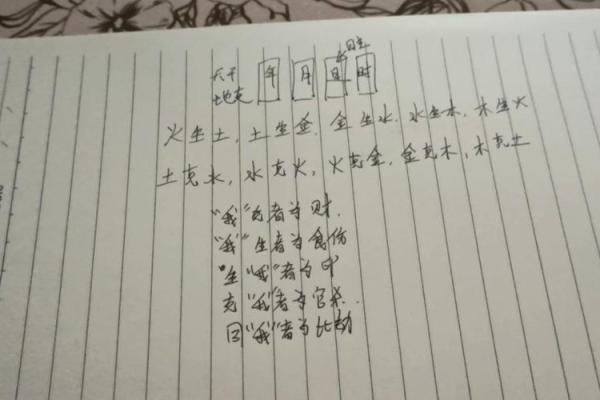 日主
天干 年 月 日 时
地支
火生土，土生金，金生水，水生木，木生火
土克水，水克火，火克金，金克木，木克土
"我"克者为财，
"我"生者为食伤
"生"我"者为印
克"我"者为官杀．
同"我"者为比劫